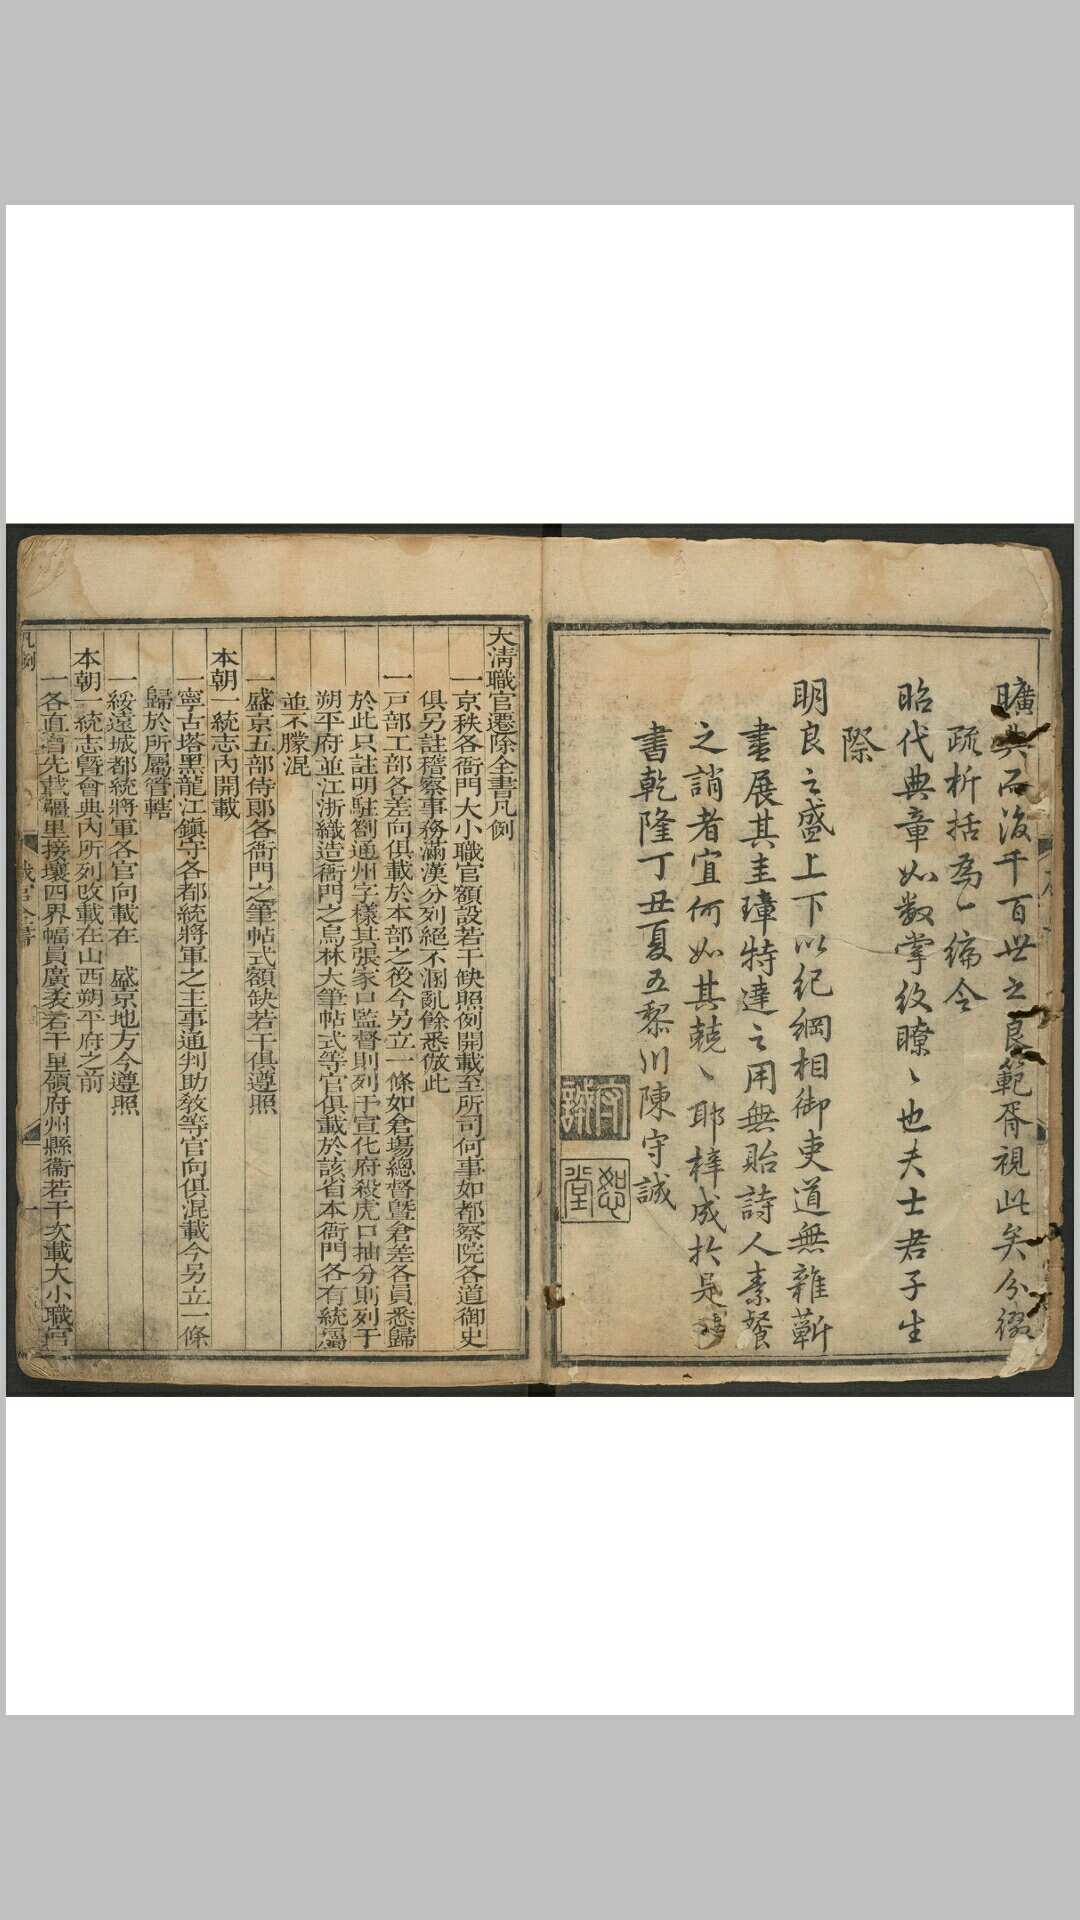 曠典而後千百世之良範胥視此矣分綴
疏析括為一編令
昭代典章如数掌紋瞭〻也夫士君子生
際
明良之盛上下以紀綱相御吏道無雜蘄
盡展其圭璋特達之用無貽詩人素餐
之誚者宜何如其兢〻耶梓成於是
書乾隆丁丑夏五黎川陳守誠
守誠
恕堂
大清職官遷除全書凡例
一京秩各衙門大小職官額設若干缺照例開載至所司何事如都察院各道御史
俱另註稽察事務滿漢分列絕不溷亂餘悉倣此
一戸部工部各差向俱載於本部之後今另立一條如倉場總督曁倉差各員悉歸
於此只註明駐劄通州字樣其張家口監督則列于宣化府殺虎口抽分則列于
朔平府並江浙織造衙門之烏林大筆帖式等官俱載於該省本衙門各有統屬
並不朦混
一盛京五部侍郞各衙門之筆帖式額缺若干俱遵照
本朝一統志內開載
一寧古塔黑龍江鎮守各都統將軍之主事通判助敎等官向俱混載今另立一條
歸於所屬管轄
一綏遠城都統將軍各官向載在 盛京地方今遵照
本朝一統志曁會典內所列改載在山西朔平府之前
一各直省先載疆里接壤四界幅員廣袤若干里領府州縣衞若干次載大小職官
凡例
職官全書
一